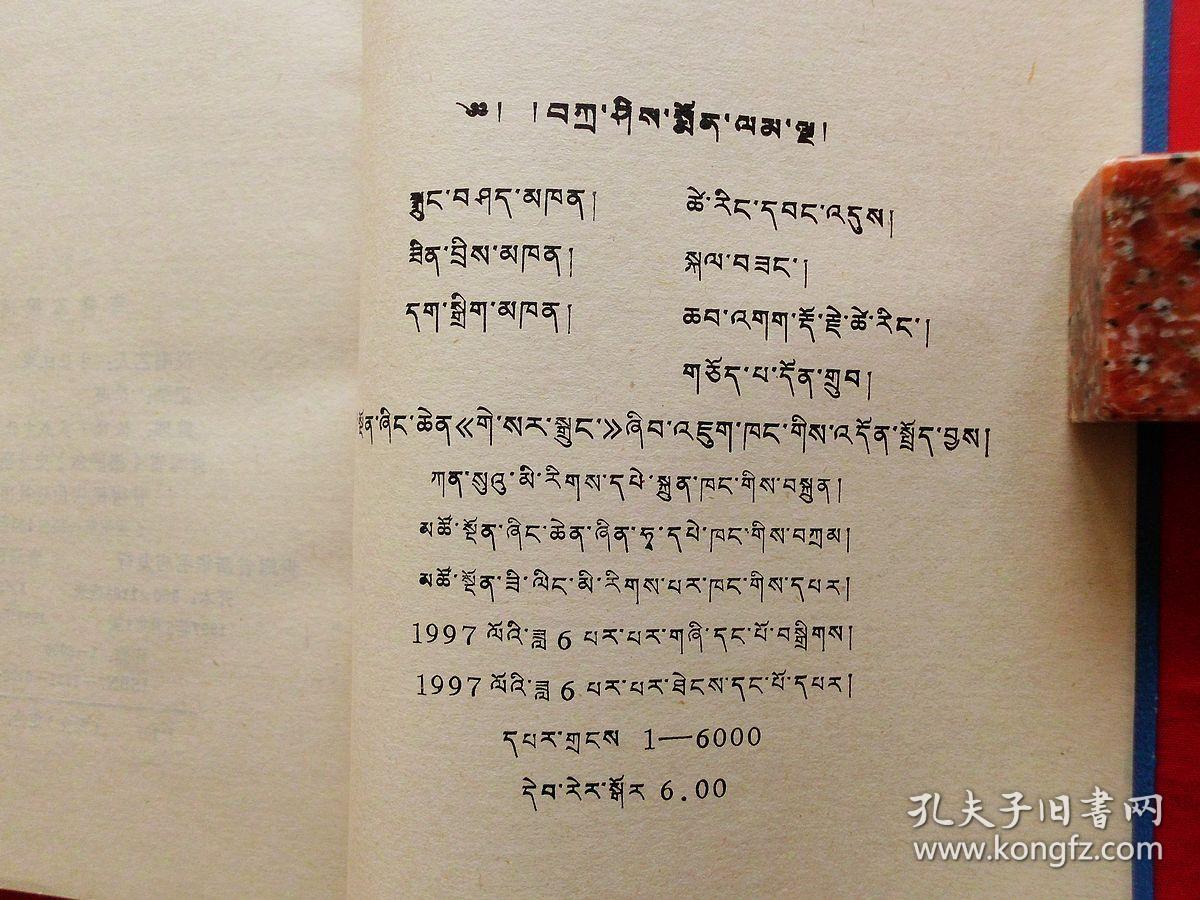 ༄༅། །བཀྲ་ཤིས་སྨོན་ལམ་ལྔ།
སྒྲུང་བཤད་མཁན། ཚེ་རིང་དབང་འདུས།
ཟིན་བྲིས་མཁན། སྐལ་བཟང་།
དག་སྒྲིག་མཁན། ཆབ་འགག་རྡོ་རྗེ་ཚེ་རིང་།
གཅོད་པ་དོན་གྲུབ།
སྔོན་ཞིང་ཆེན《གེ་སར་སྒྲུང་》ཞིབ་འཇུག་ཁང་གིས་འདོན་སྤྲོད་བྱས།
ཀན་སུའུ་མི་རིགས་དཔེ་སྐྲུན་ཁང་གིས་བསྐྲུན།
མཚོ་སྔོན་ཞིང་ཆེན་ཞིན་ཧྭ་དཔེ་ཁང་གིས་བཀྲམ།
མཚོ་སྔོན་ཟི་ལིང་མི་རིགས་པར་ཁང་གིས་དཔར།
1997 ལོའི་ཟླ 6 པར་པར་གཞི་དང་པོ་བསྒྲིགས།
1997 ལོའི་ཟླ 6 པར་པར་ཐེངས་དང་པོ་དཔར།
དཔར་གྲངས 1—6000
དེབ་རེར་སྒོར 6.00
孔夫子旧书网
www.kongfz.com